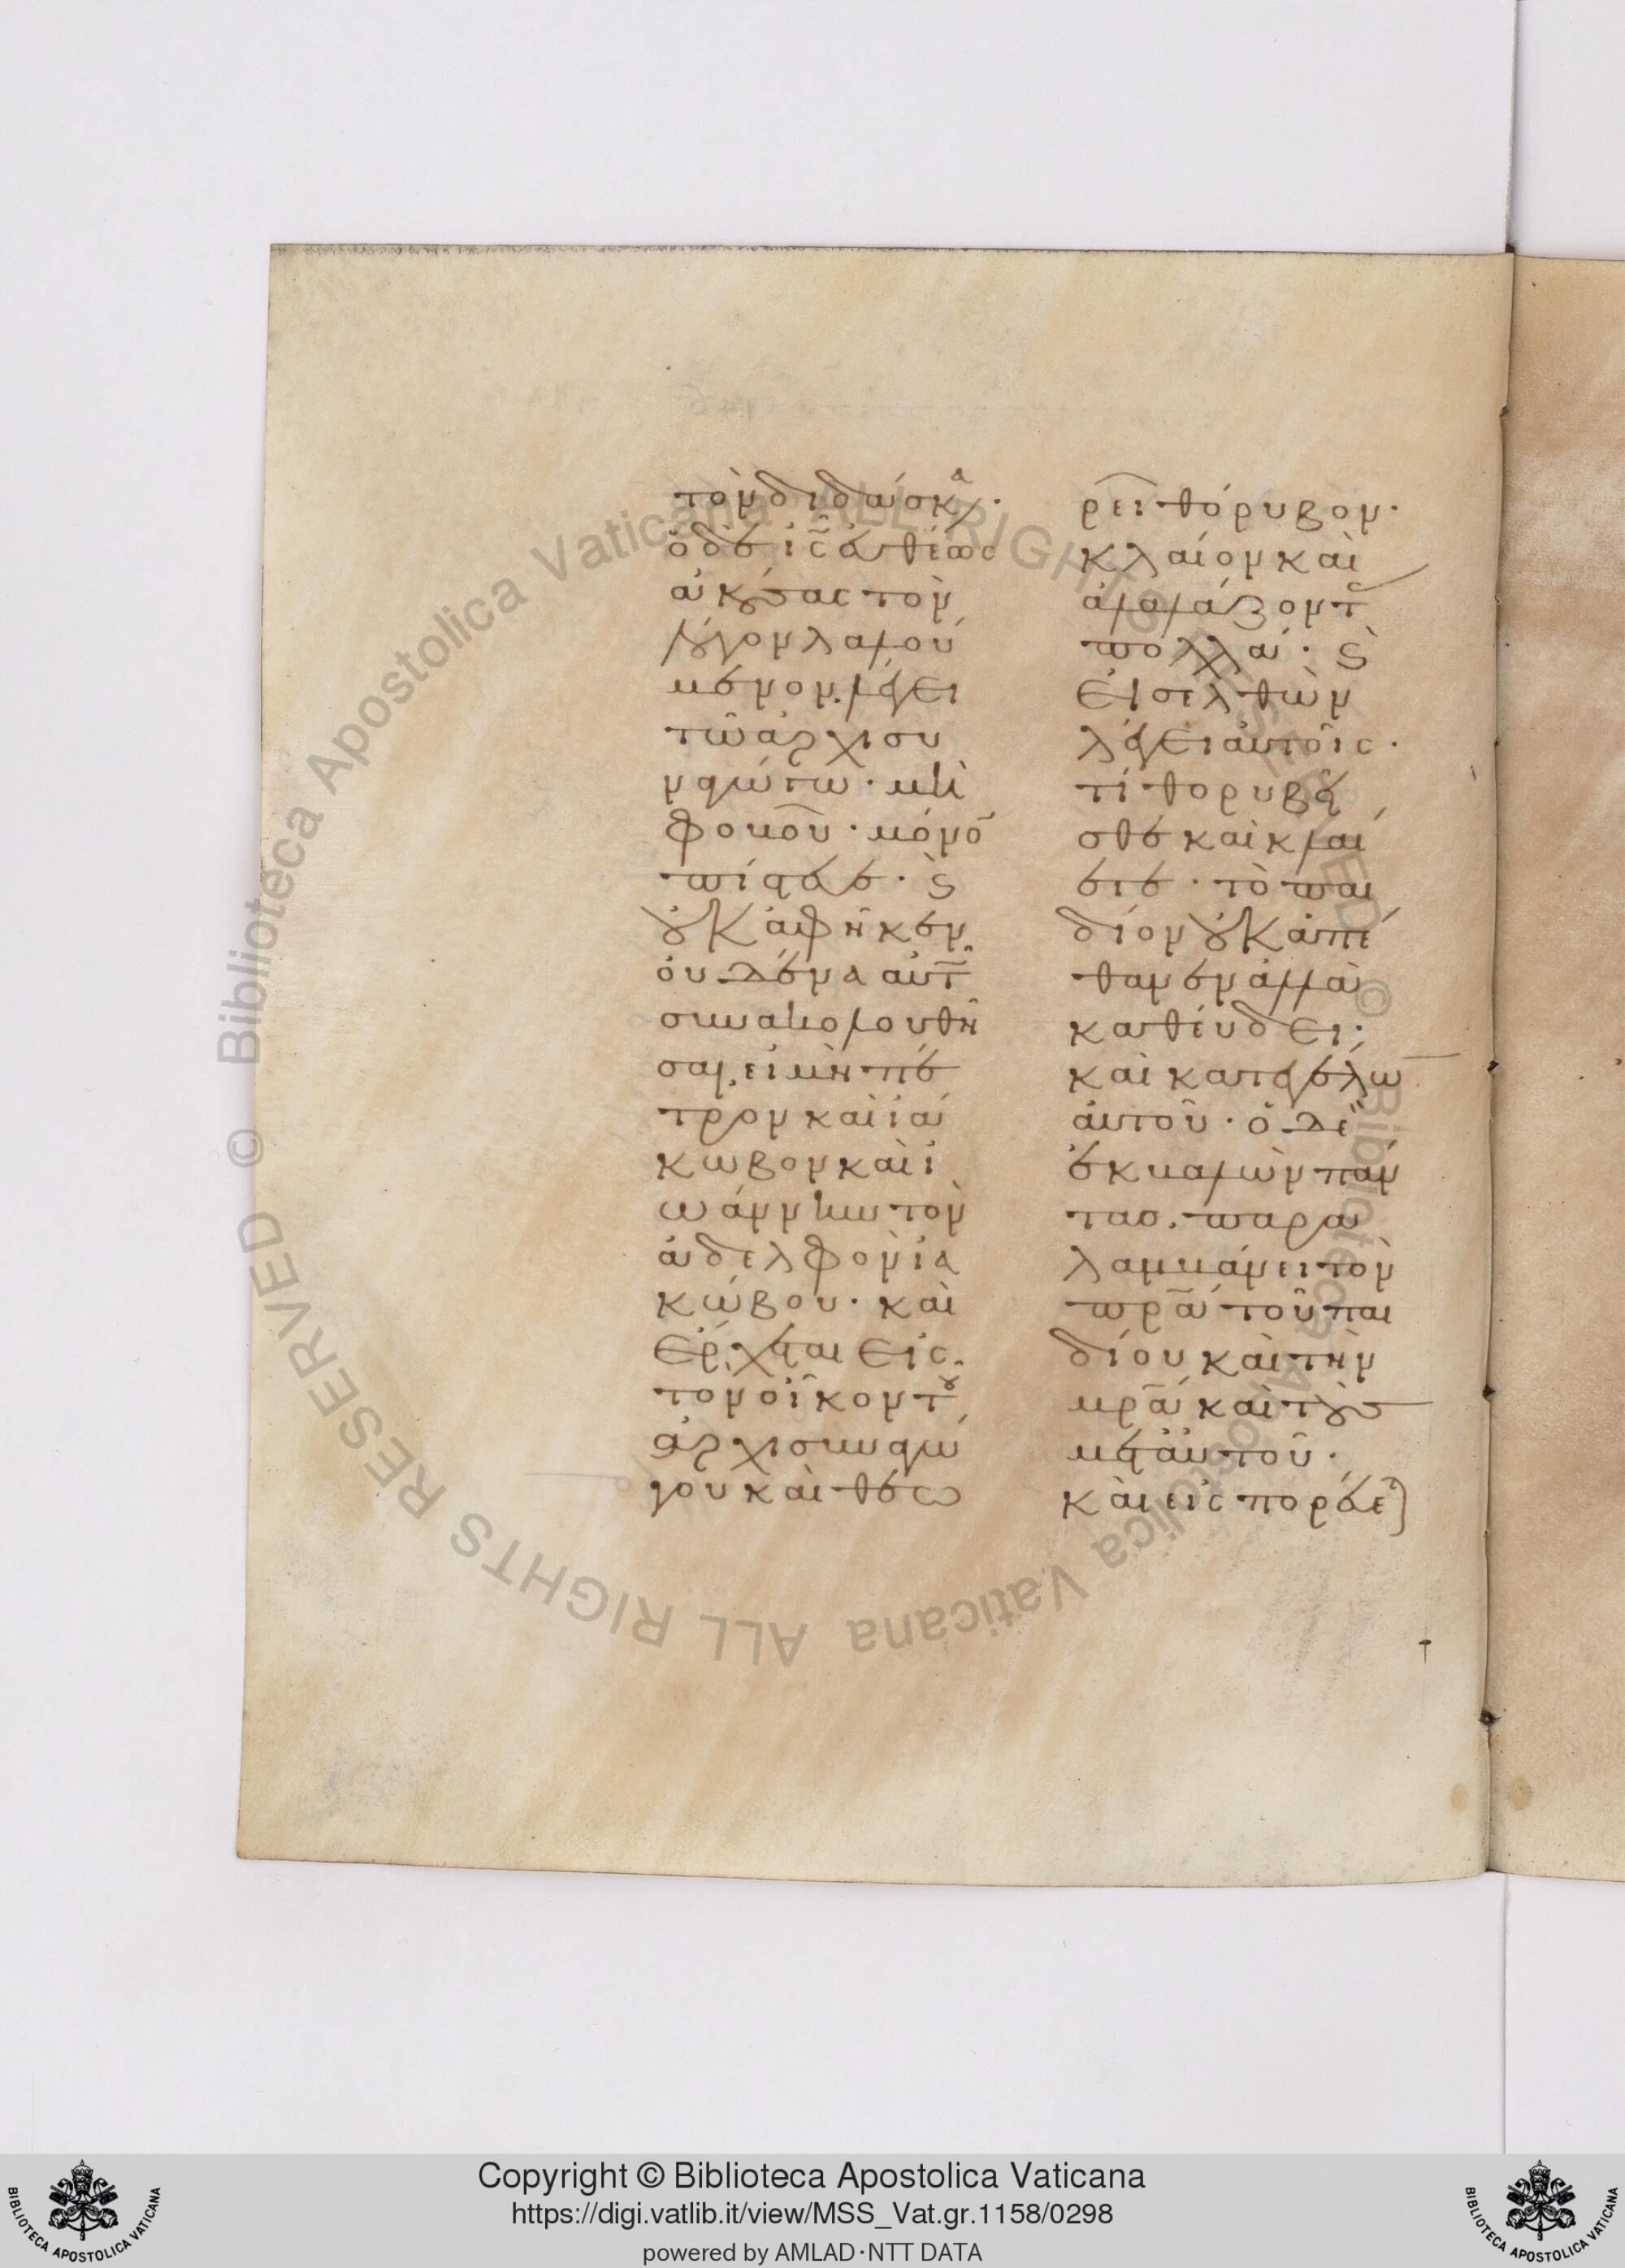 τὸν διδάσκαλ·
ὁ δὲ ις̅ εὐθέως
ἀκούσας τὸν
λόγον λαλού
μενον. λέγει
τῶ ἀρχισυ
ναγώγω· μὴ
φοβοῦ· μόνο
πίστευε· ϗ
οὐκ ἀφῆκεν
οὐδένα αὐτ
συνακολουθῆ
σαι. εἰ μὴ πέ
τρον καὶ ἰά
κωβον καὶ ἰ
ωάννην τὸν
ἀδελφὸν ἰα
κώβου· καὶ
ἔρχεται εἰς
τὸν οἶκον τοῦ
ἀρχισυναγώ
γου καὶ θεω
ρεῖ θόρυβον·
κλαίον καὶ
ἀλαλάζοντ
πολλά· ϗ
εἰσελθὼν
λέγει αὐτοῖς·
τί θορυβεῖ
σθε καὶ κλαί
ετε· τὸ παι
δίον οὐκ ἀπέ
θανεν ἀλλὰ
καθεύδει·
καὶ κατεγέλω
αὐτοῦ· ὁ δὲ
ἐκβαλὼν πάν
τασ. παρα
λαμβάνει τὸν
πρ̅α τοῦ παι
δίου καὶ τὴν
μρ̅α καὶ τοὺσ
μετ αὐτοῦ·
καὶ εἰσπορεύε
Copyright © Biblioteca Apostolica Vaticana
https://digi.vatlib.it/view/MSS_Vat.gr.1158/0298
powered by AMLAD·NTT DATA
© Biblioteca Apostolica Vaticana ALL RIGHTS RESERVED © Biblioteca Apostolica Vaticana ALL RIGHTS RESERVED
BIBLIOTECA APOSTOLICA VATICANA
BIBLIOTECA APOSTOLICA VATICANA